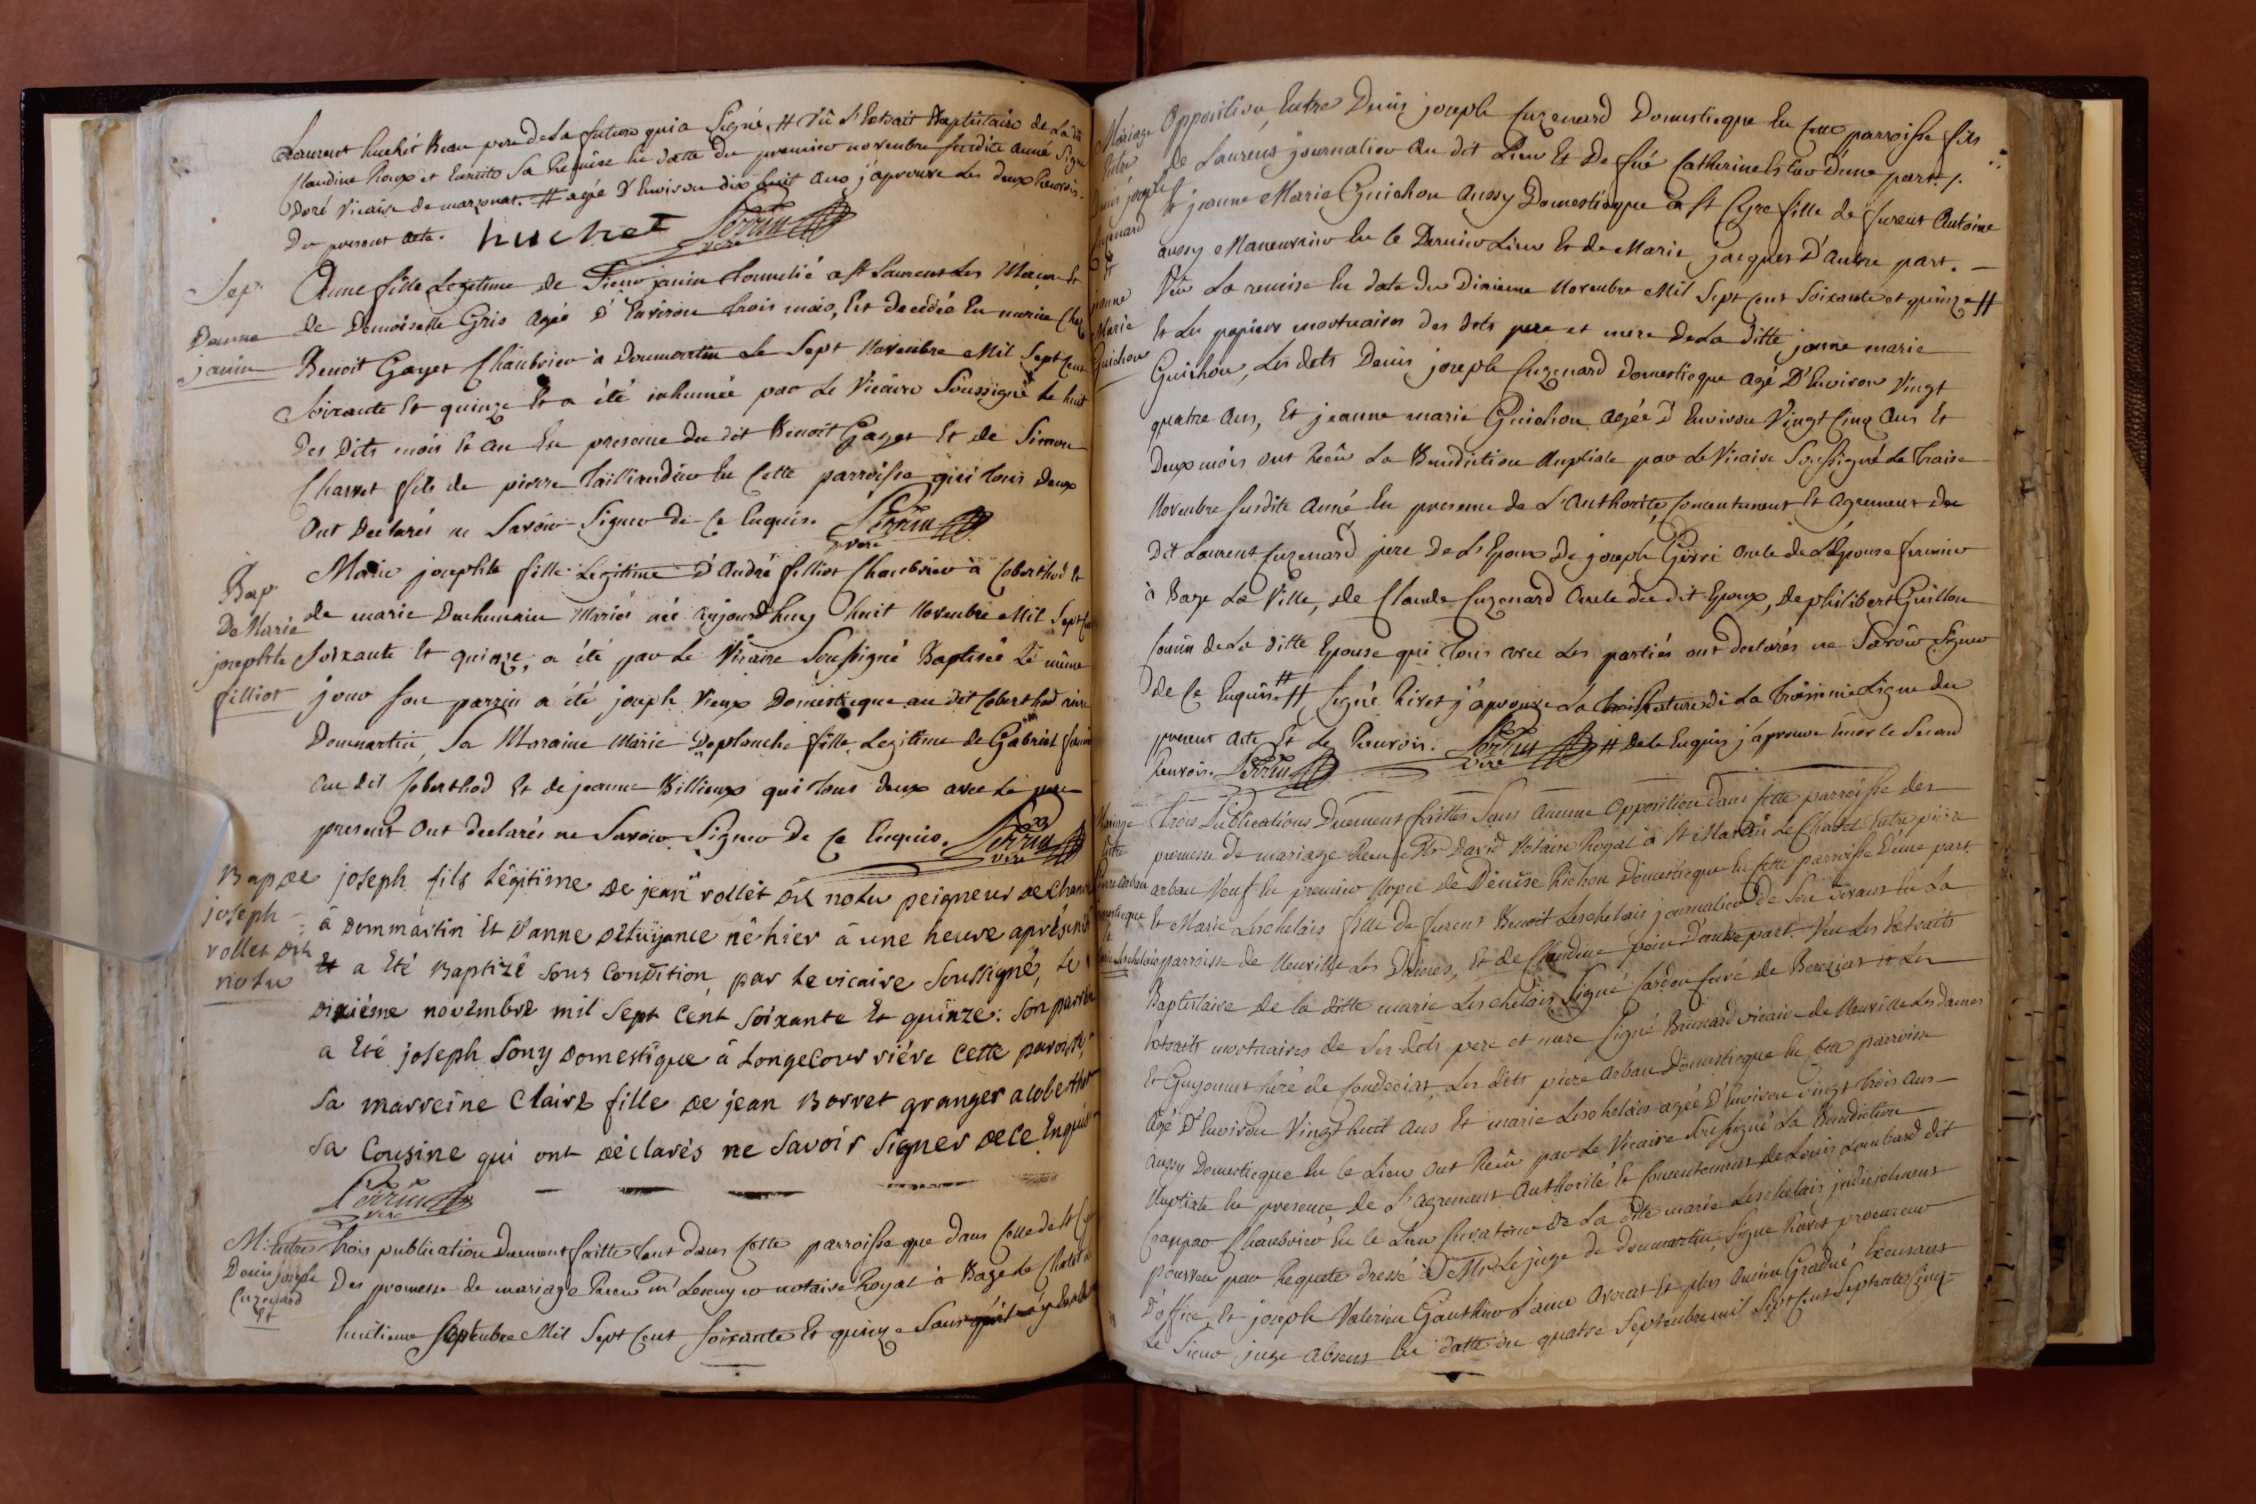 Laurent huchet Beau pere de La future qui a Signé, # vû L'Extrait Baptistaire de La ditte
Claudine houx et Ensuite Sa Remise En datte du premier novembre susdite année Signé
Doré Vicaire de marsonat. # agée D'Environ dix huit ans j'aprouve Les deux Renvois
Du present acte. huchet Perrin vire
Sep.
Danne
janin
Anne fille Legitime de Pierre janin Tonnelié a St Laurent Les Macon Et
de Demoiselle Gris agée D'Environ trois mois, Est decedée En nourice Chez
Benoit Gayet Chanbrier à Dommartin Le Sept Novembre Mil Sept Cent
Soixante Et quinze Et a été inhumée par Le Vicaire Soussigné Le huit
des Dits mois Et an En presence du dit Benoit Gayet Et de Simon
Charvet fils de pierre Tailliandier En Cette parroisse qui tous deux
Ont Declarés ne Savoir Signer de Ce Enquis. Perrin vire
Bap
De Marie
josephte
filliot
Marie josephte fille Legitime D'André filliot Chanbrier à Coberthod Et
de marie Duchumain Mariés née aujourd'huy huit Novembre Mil Sept Cent
Soixante Et quinze, a été par Le Vicaire Soussigné Baptisée Le même
jour Son parrin a été joseph Vieux Domestique au dit Coberthod
Dommartin, Sa Moraine Marie Deplanche fille Legitime de Gabriel
au dit Coberthod Et de jeanne Billioux qui tous deux avec Le pere
present Ont declarés ne Savoir Signer De Ce Enquis. Perrin vire
Bap de
joseph
rollet dit
notu
joseph fils légitime de jean rollet dit notu peigneur de chanvre
à Dommartin Et D'anne Deluÿance né hier à une heure après midi
Et a Eté Baptizé Sous Condition par Le vicaire Soussigné, Le
Dixiéme novembre mil Sept Cent Soixante Et quinze. Son parrin
a Eté joseph Sony Domestique à Longecour riére Cette paroisse,
Sa marreine Claire fille de jean Borret granger a Coberthod
Sa Cousine qui ont déclarés ne Savoir Signer de Ce Enquis
Perrin
vire
M. Entre
Denis joseph
Cuzenard
Et
trois publication Duement faitte tant dans Cette parroisse que dans Celle de St Cyre
Des promesse de mariage Receu mr Lescuyer notaire Royal à Bage Le Chatel
huitieme Septembre Mil Sept Cent Soixante Et quinze Sans
Mariage
Entre
Denis joseph
Cuzenard
Et
jeanne
Marie
Guichon
Opposition, Entre Denis joseph Cuzenard Domesticque En Cette parroisse fils
de Laurens journalier au dit Lieu Et De füe Catherine Estier D'une part.
Et jeanne Marie Guichon aussy Domesticque à St Cyre fille de furent Antoine
aussy Maneuvrier En Ce Dernier Lieu Et de Marie jacques D'autre part. —
Veu La remise En date du Dixieme Novembre Mil Sept Cent Soixante et quinze #
Et Les papiers mortuaires des dits pere et mere De La ditte jeanne marie
Guichon, Les dits Denis joseph Cuzenard domesticque agé D'Environ Vingt
quatre ans, Et jeanne marie Guichon agée D'Environ Vingt Cinq ans Et
Deux mois ont Reçû La Benediction Nuptiale par Le Vicaire Soussigné Le treise
Novembre susdite année En presence de L'authorité Consentement Et agrement du
dit Laurent Cuzenard pere de L'Epoux De joseph Girri oncle de L'Epouse fermier
à Bage La Ville, de Claude Cuzenard oncle du dit Epoux, De philibert Guillon
Cousin de La ditte Epouse qui tous avec Les parties ont declarés ne Savoir Signer
de Ce Enquis. # # Signé Rivet j'aprouve La de La troisieme Ligne du
present acte Et Le Renvoir. Perrin vire # de Ce Enquis j'aprouve Encor le Second
Renvois. Perrin
Mariage
Entre
Pierre arbau
Domesticque
Et
Marie Leschelais
Trois Publications Duement faittes Sans aucune Opposition dans Cette parroisse des
promesse de mariage Receu Mr David Notaire Royal à St Martin Le Chatel Entre pierre
arbau Veuf En premier Nopce de Denise Richon Domesticque En Cette parroisse D'une part
Et Marie Leschelais fille de furent Benoit Leschelais journalier de Son vivant En La
parroisse de Neuville Les Dames, Et de Claudine D'autre part. Veu Les Extraits
Baptistaire de la ditte marie Leschelais Signé Curé de Bereziat Et Les
Extraits mortuaires de Ses dits pere et mere Signé Brunard vicaire de Neuville Les dames
Et Guyonnet Curé de Condeciat, Les dits pierre arbau Domesticque En Cette parroisse
Agé D'Environ Vingt huit ans Et marie Leschelais agée D'Environ vingt trois ans —
aussy Domesticque En Ce Lieu ont Reçû par Le Vicaire Soussigné La Benediction
Nuptiale En presence de L'agrement Authorité Et Consentement de Louis Lombard dit
Chanbrier En Ce Lieu Curateur de La ditte marie Leschelais judiciellement
pourveu par Requete dressé à Mr Le juge de Dommartin Signé Rivet procureur
D'office Et joseph Valerien Gauthier L'ainé avocat Et plus ancien Gradué Exerçant
Le Sieur juge absent En datte du quatre Septembre mil Sept Cent Septente Cinq